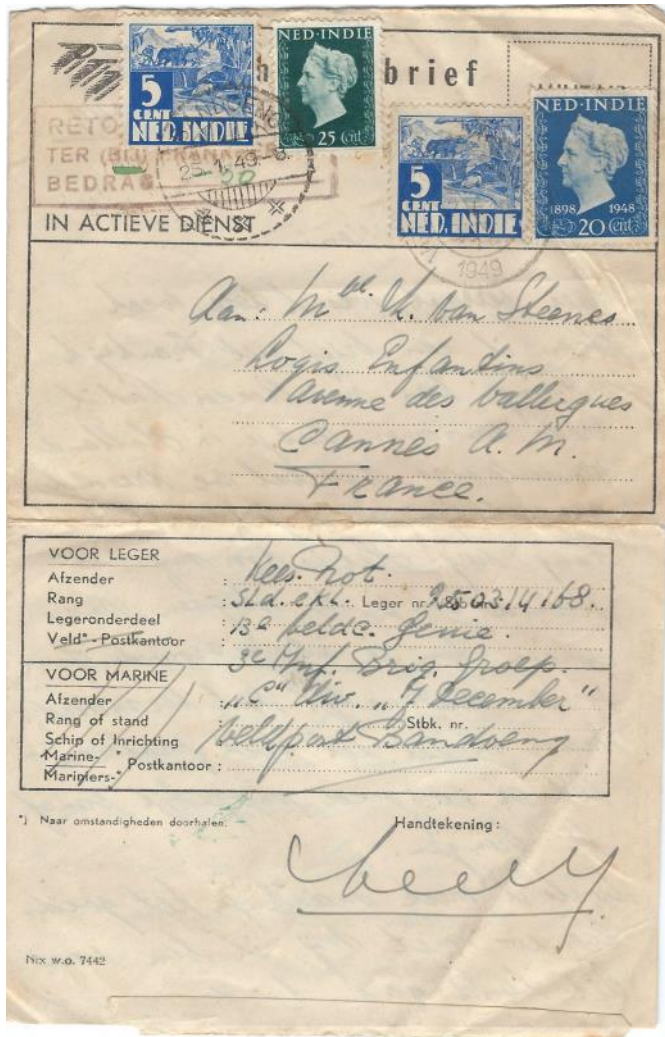 brief
5
CENT
NED. INDIE
NED·INDIE
25 Cent
5
CENT
NED. INDIE
NED·INDIE
1898 1948
20 Cent
RETO
TER (BIJ) FRANKER
BEDRAG 20
25.1.49.-8.
1949
IN ACTIEVE DIENST
Aan: Mej. K. van Steenes
Logis Enfantins
Avenue des Vallergues
Cannes A. M.
France.
VOOR LEGER
Afzender : Kees Not.
Rang : Sld. eKl. Leger nr. 25.03.14.168.
Legeronderdeel : 13e Veldc. Genie.
Veld*-Postkantoor : 3e Inf. Brig. Groep.
VOOR MARINE
Afzender : "C" Div. "7 December"
Rang of stand Stbk. nr.
Schip of Inrichting Veldpost Bandoeng
Marine-
Mariniers-* Postkantoor :
*) Naar omstandigheden doorhalen.
Handtekening :
Nix w.o. 7442